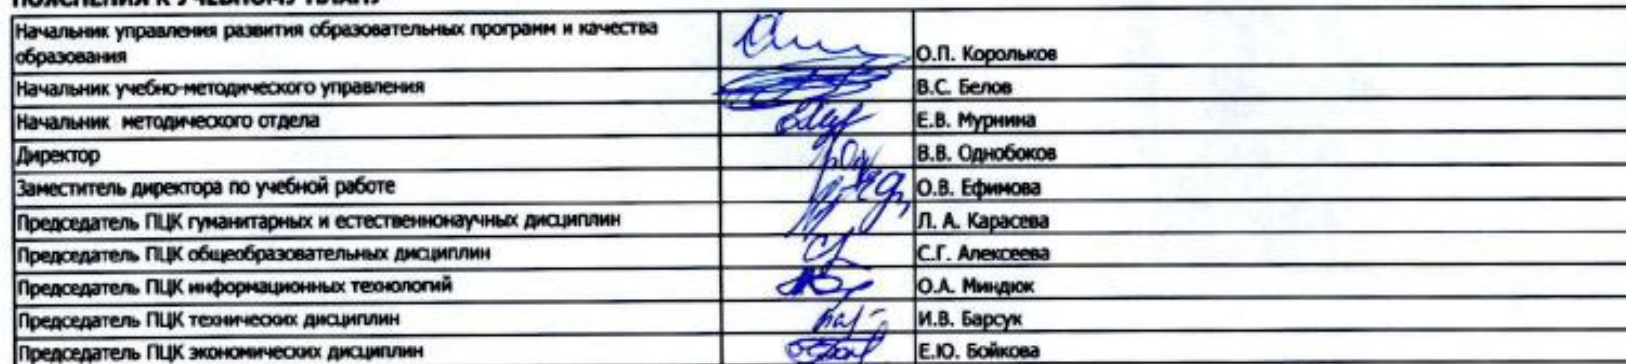 ПОЯСНЕНИЯ К УЧЕБНОМУ ПЛАНУ
Начальник управления развития образовательных программ и качества
образования
О.П. Корольков
Начальник учебно-методического управления В.С. Белов
Начальник методического отдела Е.В. Мурнина
Директор В.В. Однобоков
Заместитель директора по учебной работе О.В. Ефимова
Председатель ПЦК гуманитарных и естественнонаучных дисциплин Л. А. Карасева
Председатель ПЦК общеобразовательных дисциплин С.Г. Алексеева
Председатель ПЦК информационных технологий О.А. Миндюк
Председатель ПЦК технических дисциплин И.В. Барсук
Председатель ПЦК экономических дисциплин Е.Ю. Бойкова